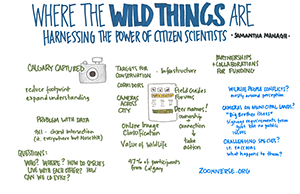 WHERE THE WILD THINGS ARE
HARNESSING THE POWER OF CITIZEN SCIENTISTS
- SAMANTHA MANAGH -
CALGARY CAPTURED
reduce footprint
expand understanding
PROBLEM WITH DATA
QUESTIONS:
WHO? WHERE? HOW DO SPECIES
LIVE WITH EACH OTHER? HOW
CAN WE
TARGETS FOR
CONSERVATION
CORRIDORS
- Infrastructure
CAMERAS
ACROSS
CITY
Online Image
Classification
Value of wildlife
47% of participants
from Calgary
Field Guides
names!
ownership
connection
&
take
action
PARTNERSHIPS
+ COLLABORATIONS
FOR FUNDING
HUMAN PEOPLE CONFLICT?
mostly around perception
CAMERAS ON MUNICIPAL LANDS?
"Big Brother Issues"
signage requirements
no public
issues
CHALLENGING SPECIES?
i.e. RACCOONS
What happens to them?
ZOONIVERSE.ORG